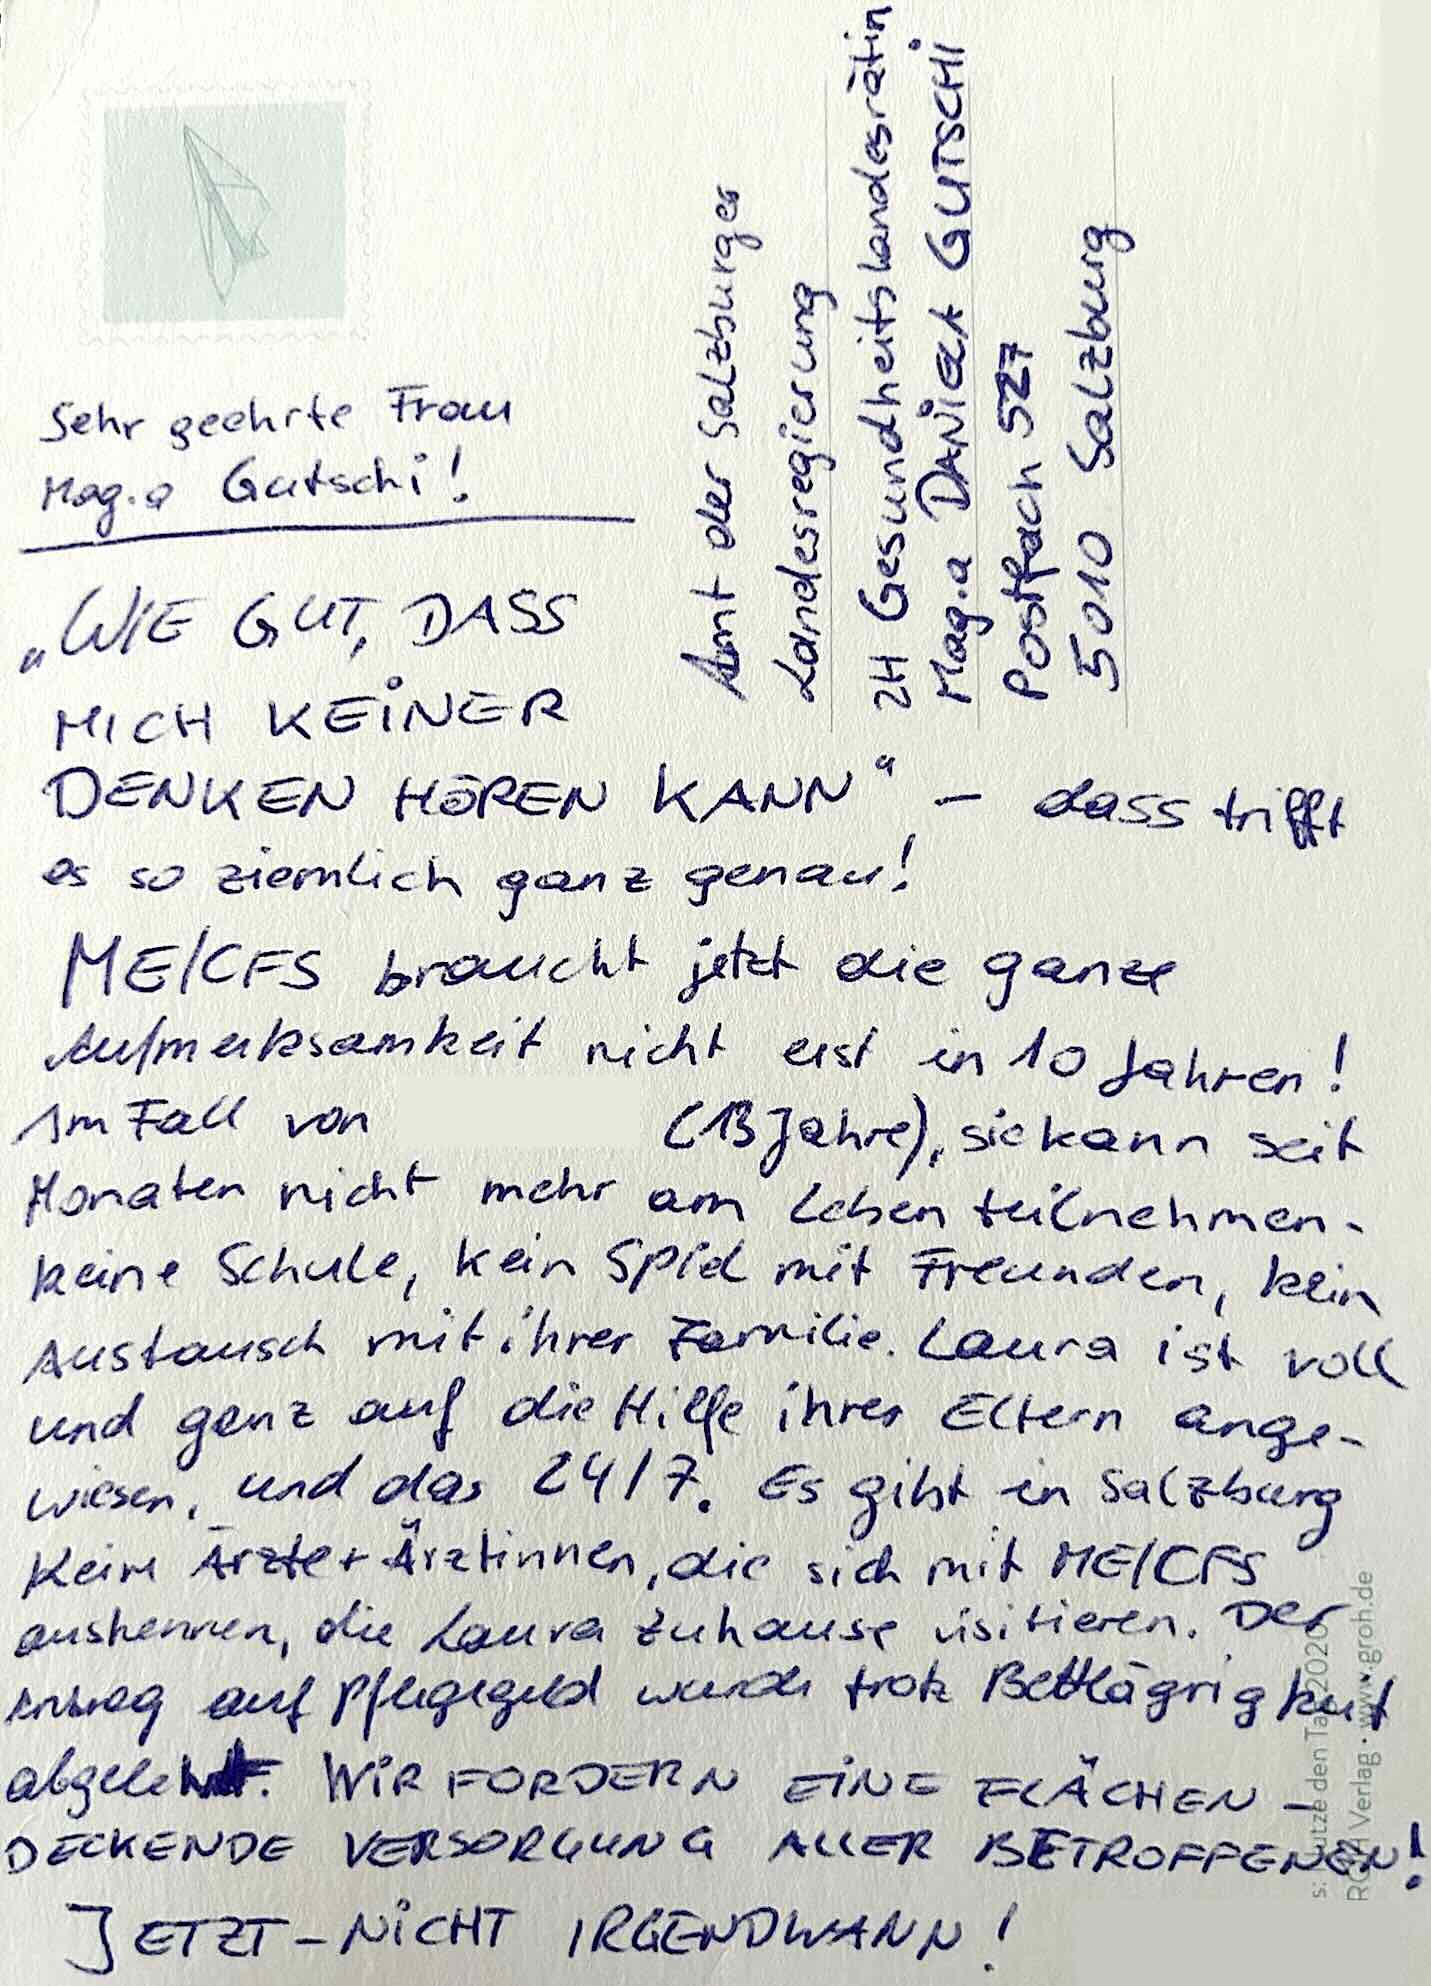 Amt der Salzburger
Landesregierung
2H Gesundheitslandesrätin
Mag.a DANIELA GUTSCHI
Postfach 527
5010 Salzburg
Sehr geehrte Frau
Mag.a Gutschi!
„WIE GUT, DASS
MICH KEINER
DENKEN HÖREN KANN" – dass trifft
es so ziemlich ganz genau!
ME/CFS braucht jetzt die ganze
Aufmerksamkeit nicht erst in 10 Jahren!
Im Fall von (13 Jahre), sie kann seit
Monaten nicht mehr am Leben teilnehmen -
keine Schule, kein Spiel mit Freunden, kein
Austausch mit ihrer Familie. Laura ist voll
und ganz auf die Hilfe ihrer Eltern ange-
wiesen, und das 24/7. Es gibt in Salzburg
keine Ärzte + Ärztinnen, die sich mit ME/CFS
auskennen, die Laura zuhause visitieren. Der
Antrag auf Pflegegeld wurde trotz Bettlägrigkeit
abgelehnt. WIR FORDERN EINE FLÄCHEN-
DECKENDE VERSORGUNG ALLER BETROFFENEN!
JETZT – NICHT IRGENDWANN!
Verlag · www.groh.de